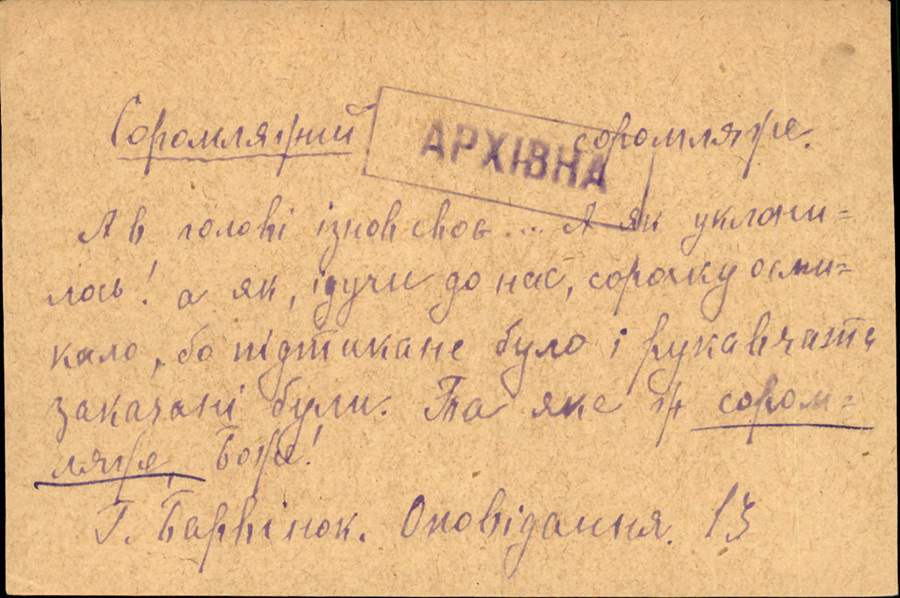 Соромляжий соромляже.
АРХІВНА
А в голові ізнов своє... А як уклони-
лось! а як, ідучи до нас, сорочку осми-
кало, бо підтикане було і рукавчата
закачані були. Та яке ж сором-
ляже, Боже!
Г. Барвінок. Оповідання. 13